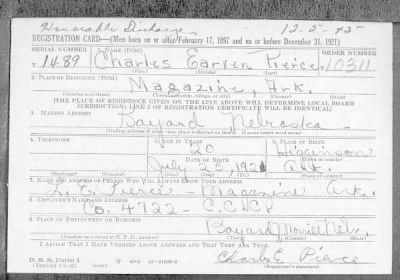 Honorable Discharge 12-5-45
REGISTRATION CARD—(Men born on or after February 17, 1897 and on or before December 31, 1921)
SERIAL NUMBER 1. NAME (Print) ORDER NUMBER
T 1489 Charles Earten Pierce 10311
(First) (Middle) (Last)
2. PLACE OF RESIDENCE (Print)
Magazine, Ark.
(Number and street) (Town, township, village, or city) (County) (State)
[THE PLACE OF RESIDENCE GIVEN ON THE LINE ABOVE WILL DETERMINE LOCAL BOARD
JURISDICTION; LINE 2 OF REGISTRATION CERTIFICATE WILL BE IDENTICAL]
3. MAILING ADDRESS
Bayard Nebraska
[Mailing address if other than place indicated on line 2. If same insert word same]
4. TELEPHONE 5. AGE IN YEARS 6. PLACE OF BIRTH
20 Higginson
DATE OF BIRTH
July 25, 1921 Ark.
7. NAME AND ADDRESS OF PERSON WHO WILL ALWAYS KNOW YOUR ADDRESS
Pierce — Magazine Ark.
8. EMPLOYER'S NAME AND ADDRESS
Co. 4722 - C.C.C.
9. PLACE OF EMPLOYMENT OR BUSINESS
Bayard Morrill Nebr.
(Number and street or R. F. D. number) (Town) (County) (State)
I AFFIRM THAT I HAVE VERIFIED ABOVE ANSWERS AND THAT THEY ARE TRUE.
D. S. S. Form 1
Charles E Pierce